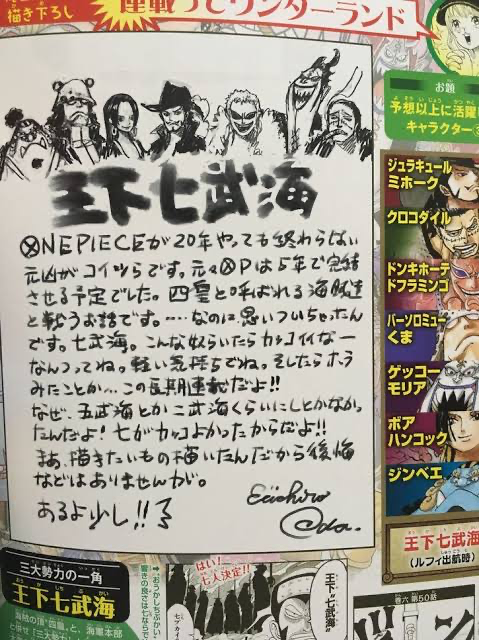 描き下ろし
連載っとワンダーランド
王下七武海
ONEPIECEが20年やっても終わらない
元凶がコイツらです。元々OPは5年で完結
させる予定でした。四皇と呼ばれる海賊達
と戦うお話です。……なのに思いついちゃったん
です。七武海。こんな奴らいたらカッコイイなー
なんつってね。軽い気持ちでね。そしたらホラ
みたことか…この長期連載だよ!!
なぜ、五武海とか二武海くらいにしとかなかっ
たんだよ!七がカッコよかったからだよ!!
まぁ、描きたいもの描いたんだから後悔
などはありませんが。
あるよ少し!!
Eiichiro
Oda.
お題
予想以上に活躍
キャラクター
ジュラキュール
ミホーク
クロコダイル
ドンキホーテ
ドフラミンゴ
バーソロミュー
くま
ゲッコー
モリア
ボア
ハンコック
ジンベエ
王下七武海
(ルフィ出航時)
三大勢力の一角
王下七武海
海賊の頂“四皇”と、海軍本部
と並ぶ“三大勢
はい!
七人決定!!
王下“七武海”
巻六 第50話